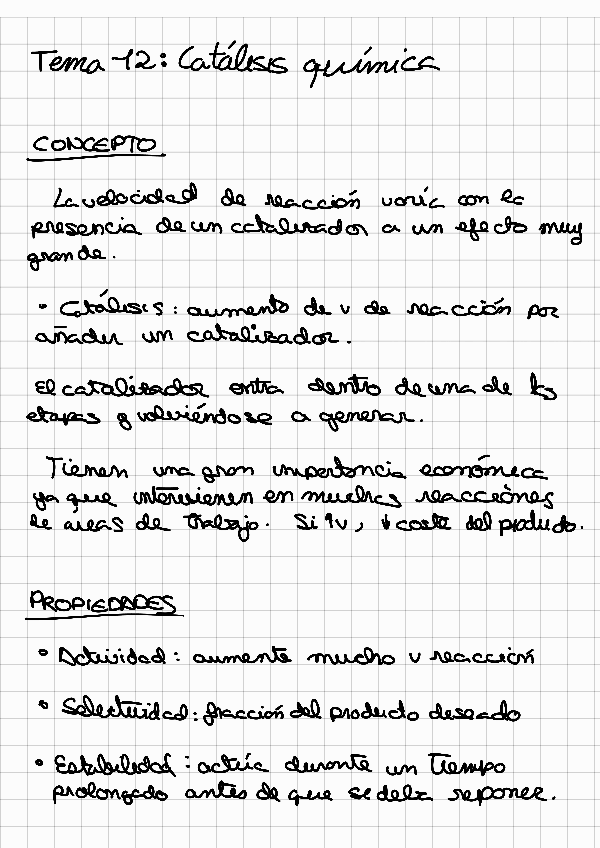 Tema 12: Catálisis química
CONCEPTO
La velocidad de reacción varía con la
presencia de un catalizador a un efecto muy
grande.
• Catálisis: aumento de v de reacción por
añadir un catalizador.
El catalizador entra dentro de una de las
etapas y volviéndose a generar.
Tienen una gran importancia económica
ya que intervienen en muchas reacciones
de áreas de trabajo. Si ↑v, ↓coste del producto.
PROPIEDADES
• Actividad: aumente mucho v reacción
• Selectividad: fracción del producto deseado
• Estabilidad: actúa durante un tiempo
prolongado antes de que se deba reponer.